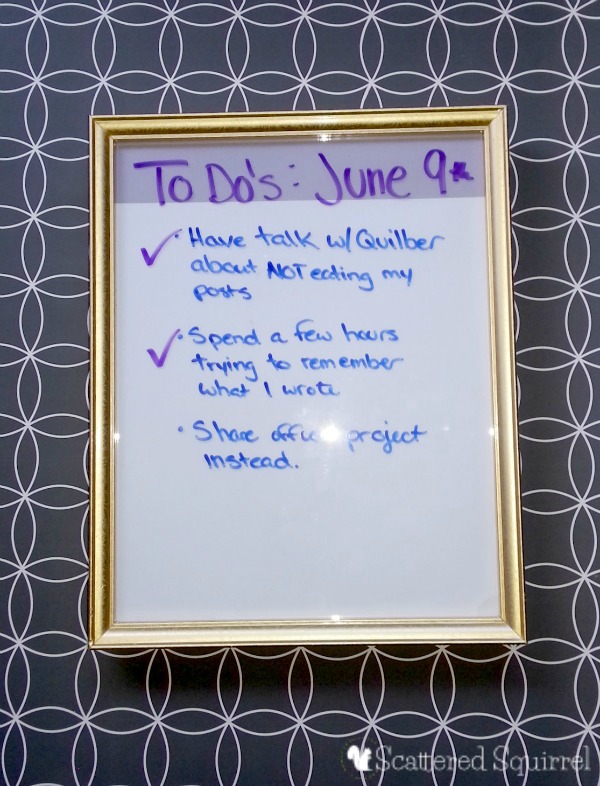 To Do's: June 9
• Have talk w/ Quilber
about NOT eating my
posts
• Spend a few hours
trying to remember
what I wrote
• Share office project
instead.
Scattered Squirrel